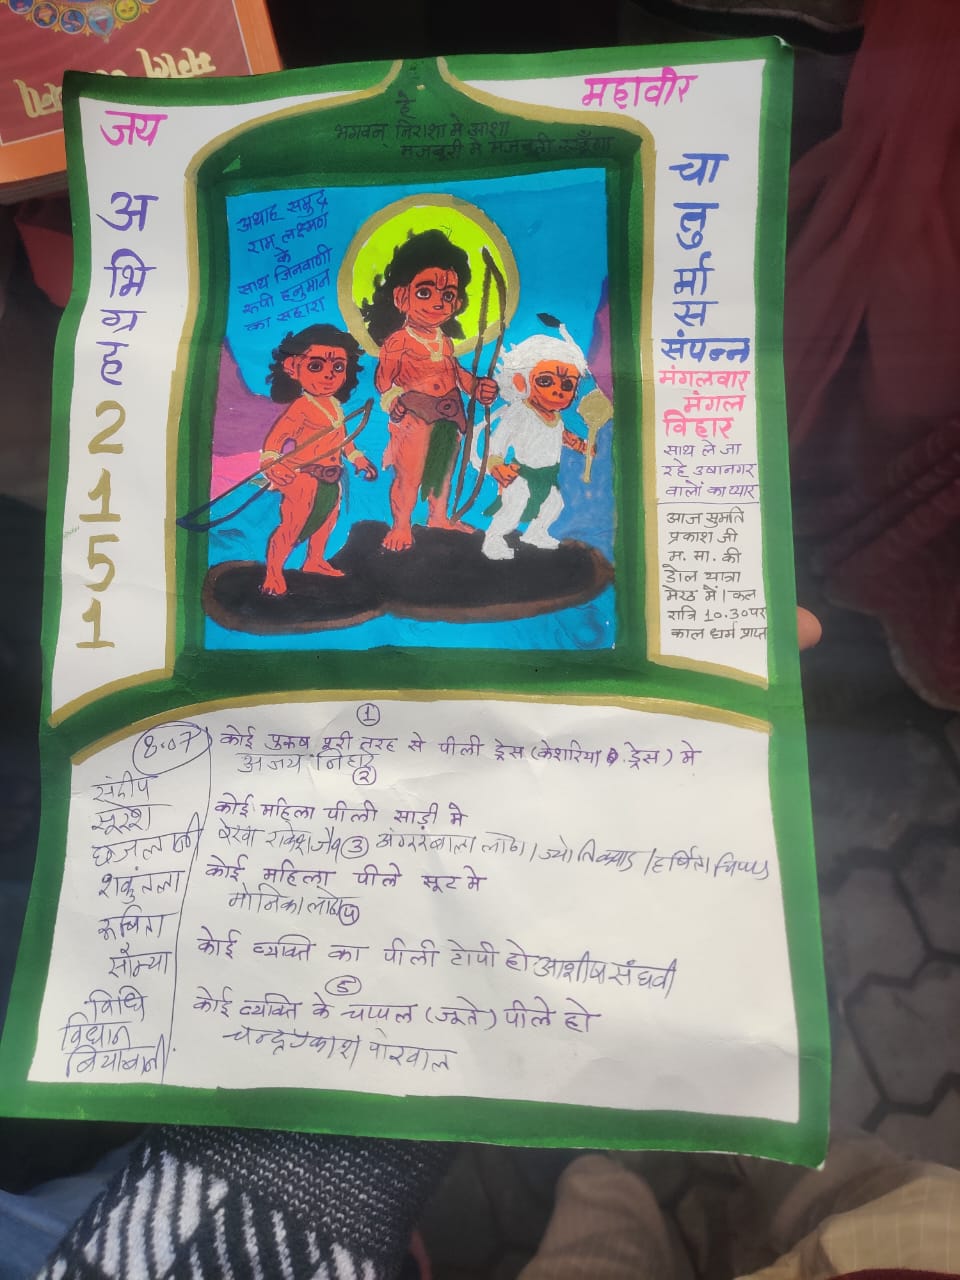 जय
महावीर
अ
भि
ग्र
ह
2
1
5
1
है
भगवन् निराशा मे आशा
मजबूरी मे मजबूती
अथाह समुद्र
राम लक्ष्मण
के
साथ जिनवाणी
रूपी हनुमान
का सहारा
चा
तु
र्मा
स
संपन्न
मंगलवार
मंगल
विहार
साथ ले जा
रहे उषानगर
वालों का प्यार
आज सुमति
प्रकाश जी
म. सा. की
डोल यात्रा
मेरठ में। कल
रात्रि 10.30 पर
काल धर्म प्राप्त
8.07
संदीप
सुरेश
शकुंतला
रूचिता
सौम्या
विधि
विधान
1
कोई पुरुष पूरी तरह से पीली ड्रेस (केशरिया ड्रेस) मे
अजय
2
कोई महिला पीली साड़ी मे
राकेश जैन
3
कोई महिला पीले सूट मे
मोनिका
4
कोई व्यक्ति का पीली टोपी हो आशीष संघवी
5
कोई व्यक्ति के चप्पल (जूते) पीले हो
चन्द्रप्रकाश पोरवाल